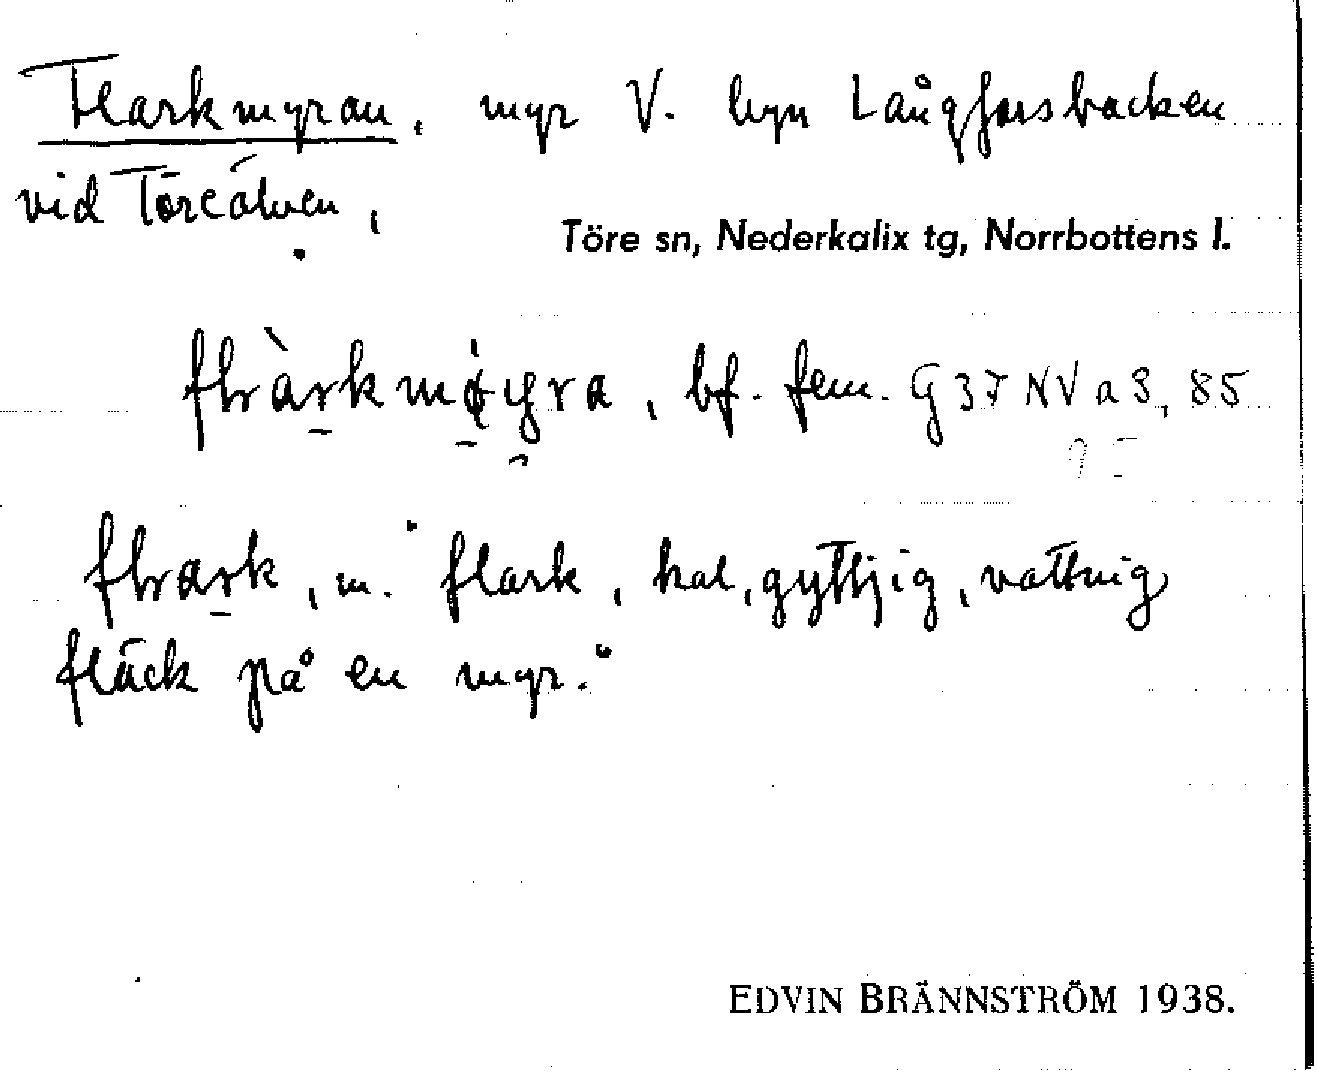 Flarkmyran, myr V. byn Långforsbacken
vid Töreälven,
Töre sn, Nederkalix tg, Norrbottens l.
bf. fem. G 37 NV a 8, 85
m. "flark, hal, gyttjig, vattnig
fläck på en myr."
EDVIN BRÄNNSTRÖM 1938.